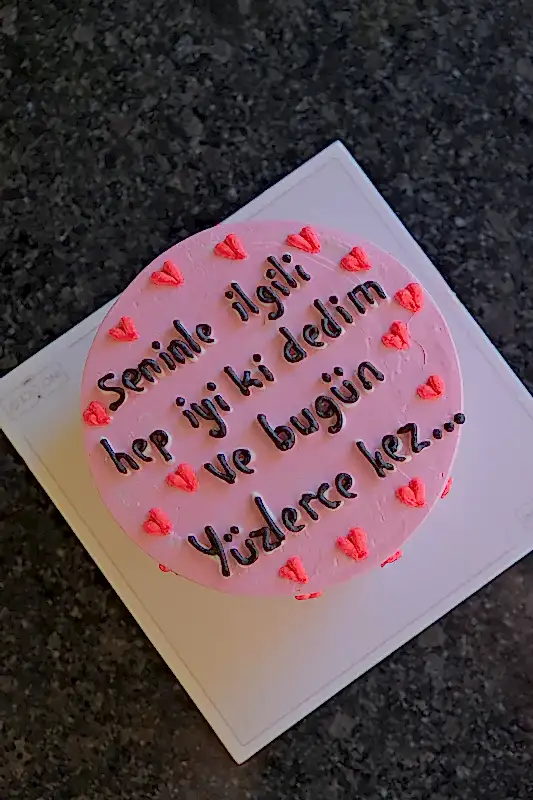 Seninle ilgili
hep iyi ki dedim
ve bugün
Yüzlerce kez...